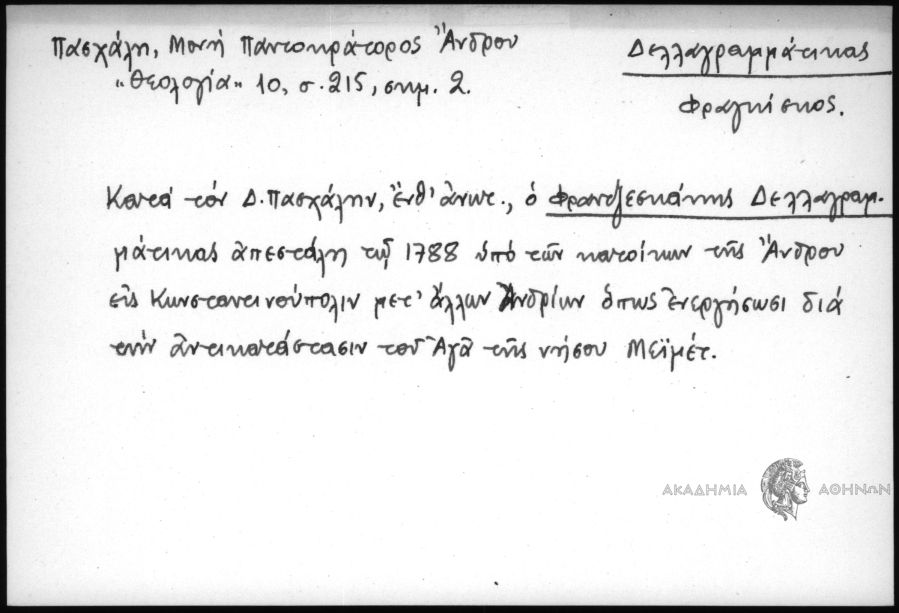 Πασχάλη, Μονή Παντοκράτορος Ἄνδρου
"Θεολογία" 10, σ. 215, σημ. 2.
Δελλαγραμμάτικας
Φραγκίσκος.
Κατά τόν Δ. Πασχάλην, ἔνθ' ἄνωτ., ὁ Φραντζεσκάκης Δελλαγραμ-
μάτικας ἀπεστάλη τῷ 1788 ὑπό τῶν κατοίκων τῆς Ἄνδρου
εἰς Κωνσταντινούπολιν μετ' ἄλλων Ἀνδρίων ὅπως ἐνεργήσωσι διά
τήν ἀντικατάστασιν τοῦ Ἀγᾶ τῆς νήσου Μεϊμέτ.
ΑΚΑΔΗΜΙΑ ΑΘΗΝΩΝ